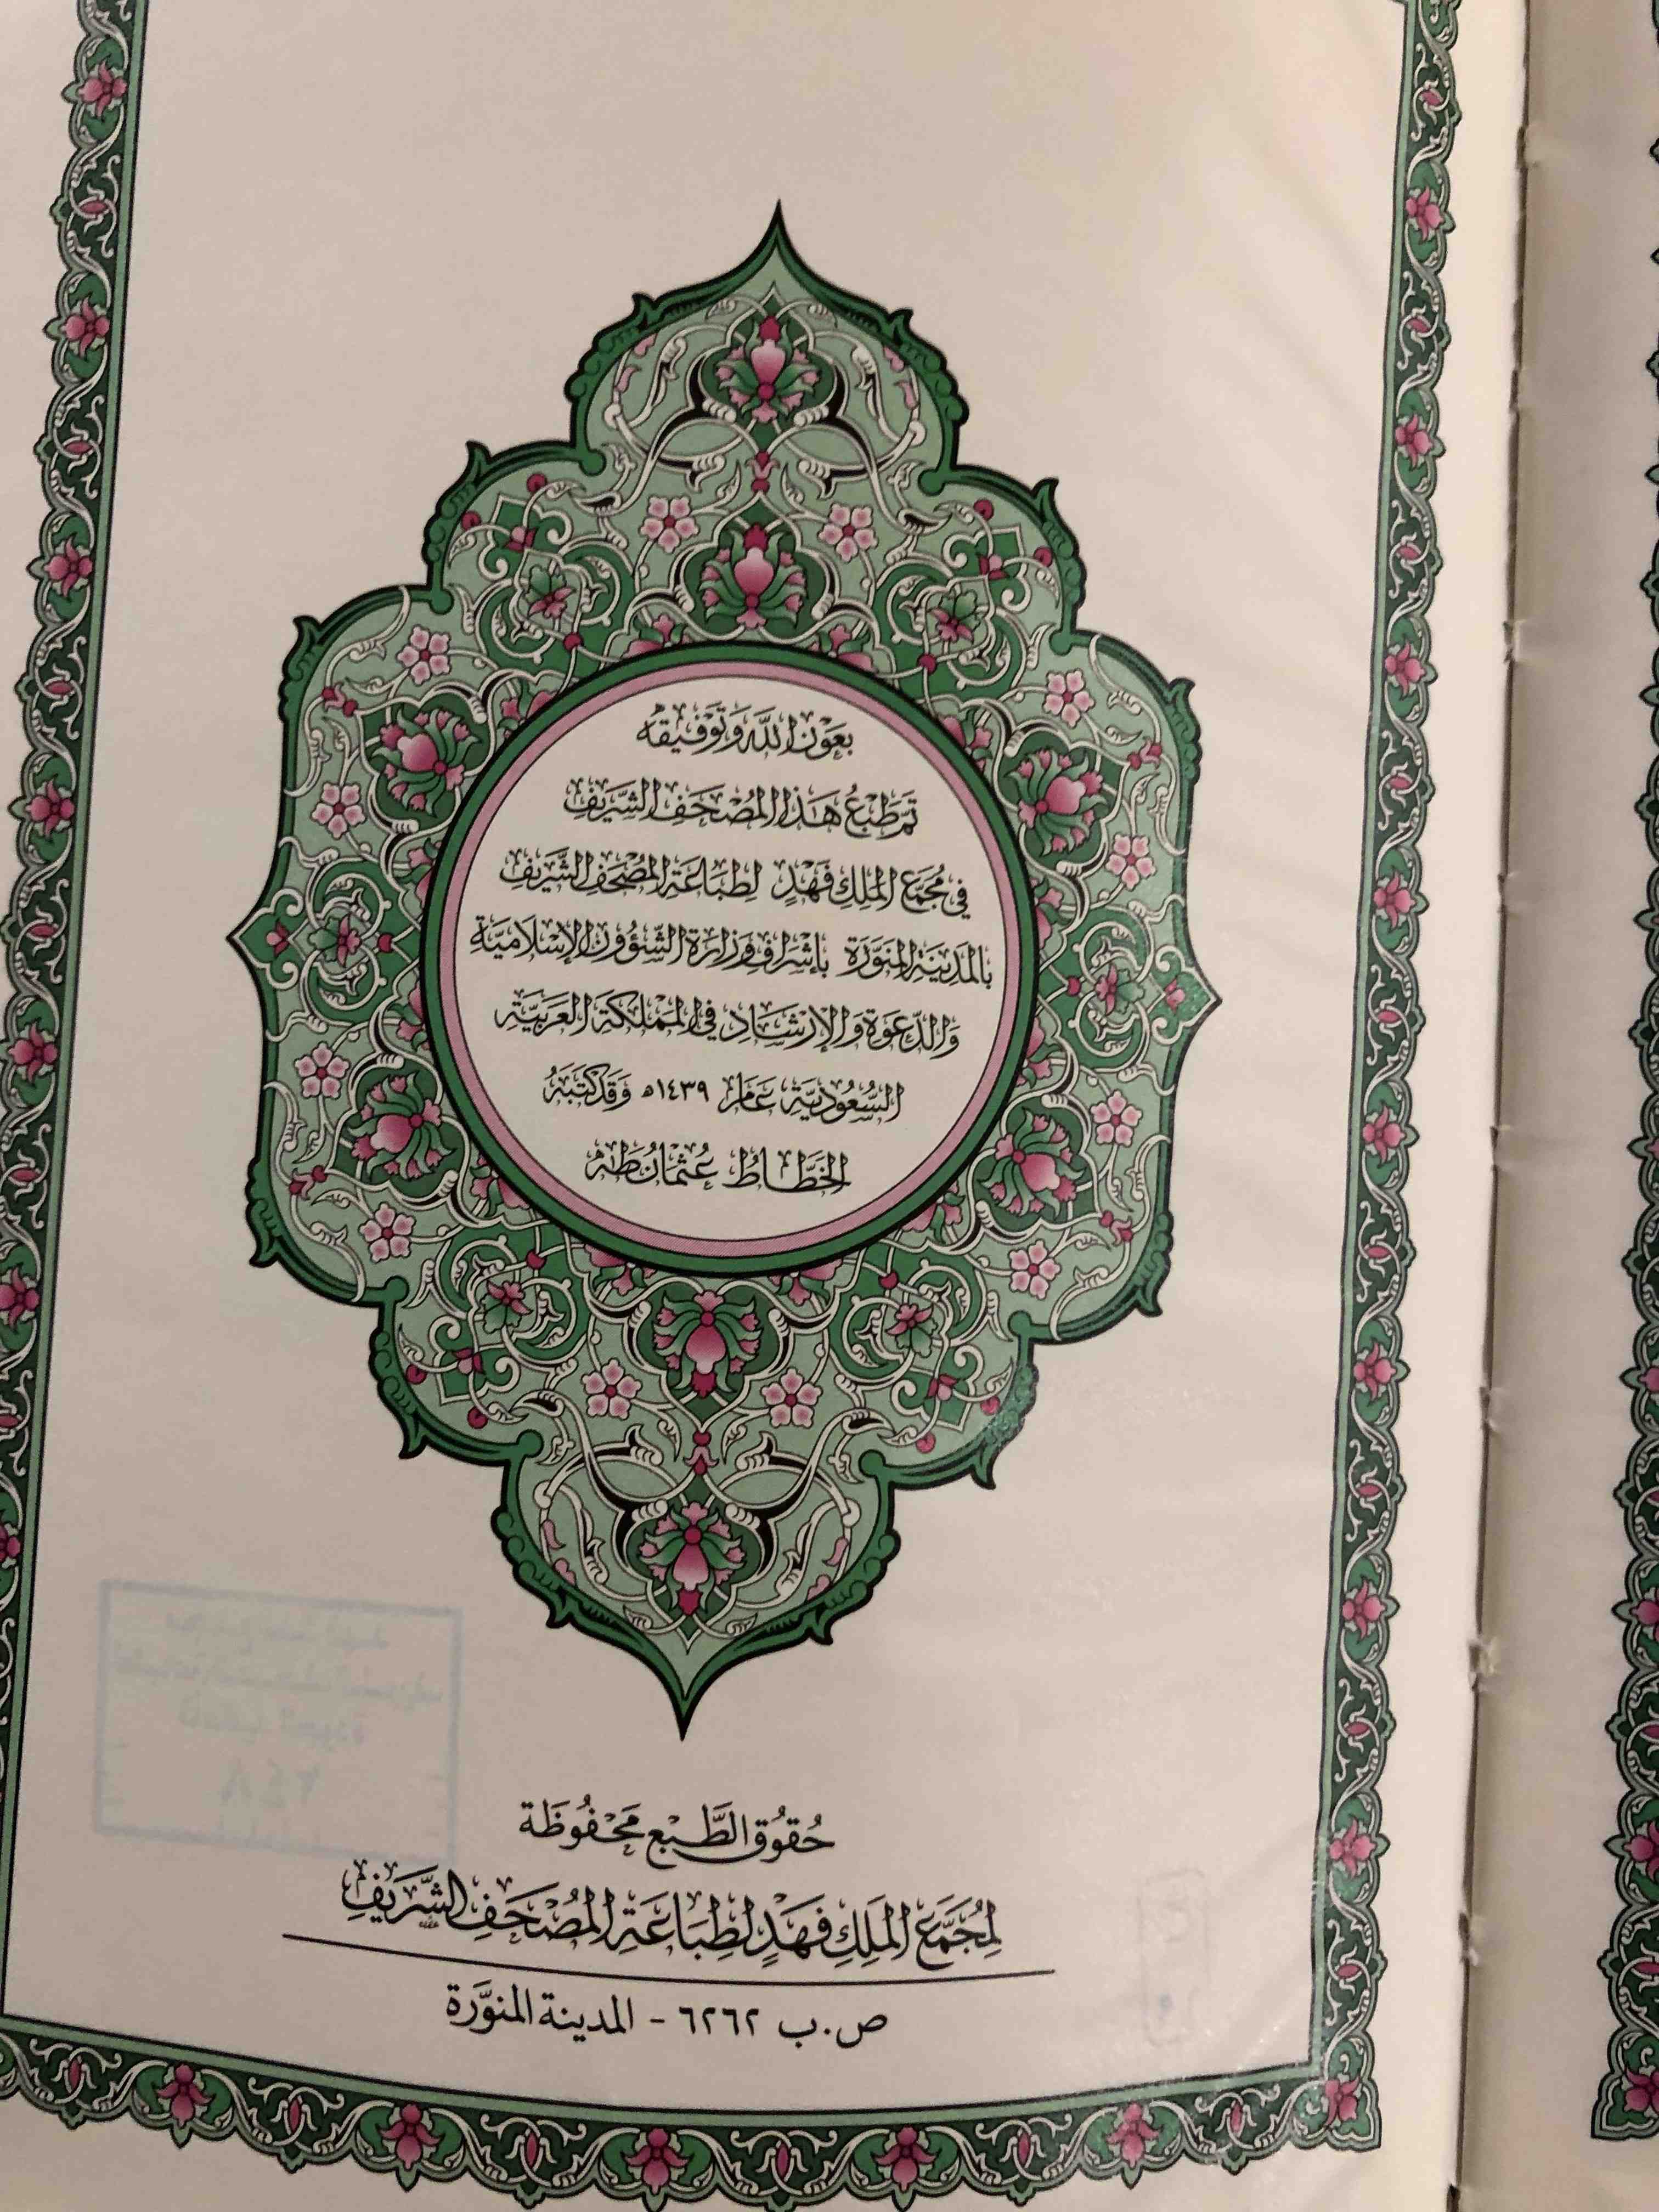 بِعَوْنِ اللَّهِ وَتَوْفِيقِهِ
تَمَّ طَبْعُ هَٰذَا الْمُصْحَفِ الشَّرِيفِ
فِي مُجَمَّعِ الْمَلِكِ فَهْدٍ لِطِبَاعَةِ الْمُصْحَفِ الشَّرِيفِ
بِالْمَدِينَةِ الْمُنَوَّرَةِ بِإِشْرَافِ وِزَارَةِ الشُّؤُونِ الْإِسْلَامِيَّةِ
وَالدَّعْوَةِ وَالْإِرْشَادِ فِي الْمَمْلَكَةِ الْعَرَبِيَّةِ
السُّعُودِيَّةِ عَامَ ١٤٣٩ه وَقَدْ كَتَبَهُ
الْخَطَّاطُ عُثْمَانُ طٰه
حُقُوقُ الطَّبْعِ مَحْفُوظَة
لِمُجَمَّعِ الْمَلِكِ فَهْدٍ لِطِبَاعَةِ الْمُصْحَفِ الشَّرِيفِ
ص.ب ٦٢٦٢ - المدينة المنوَّرة